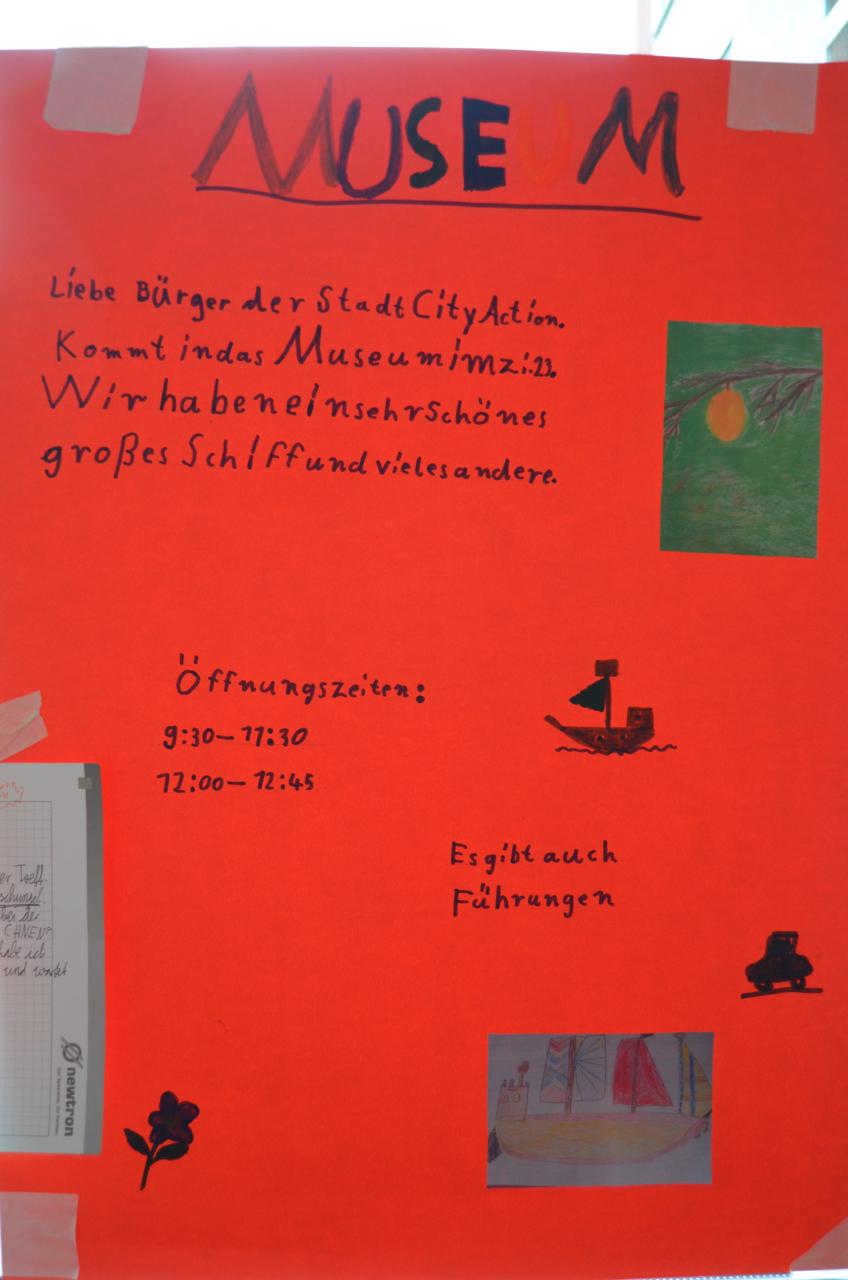 MUSEUM
Liebe Bürger der Stadt City Action.
Kommt in das Museum im Zi.23.
Wir haben ein sehr Schönes
großes Schiff und vieles andere.
Öffnungszeiten:
9:30–11:30
12:00–12:45
Es gibt auch
Führungen
er Treff-
über der
CHNEN
habe ich
und
newtron